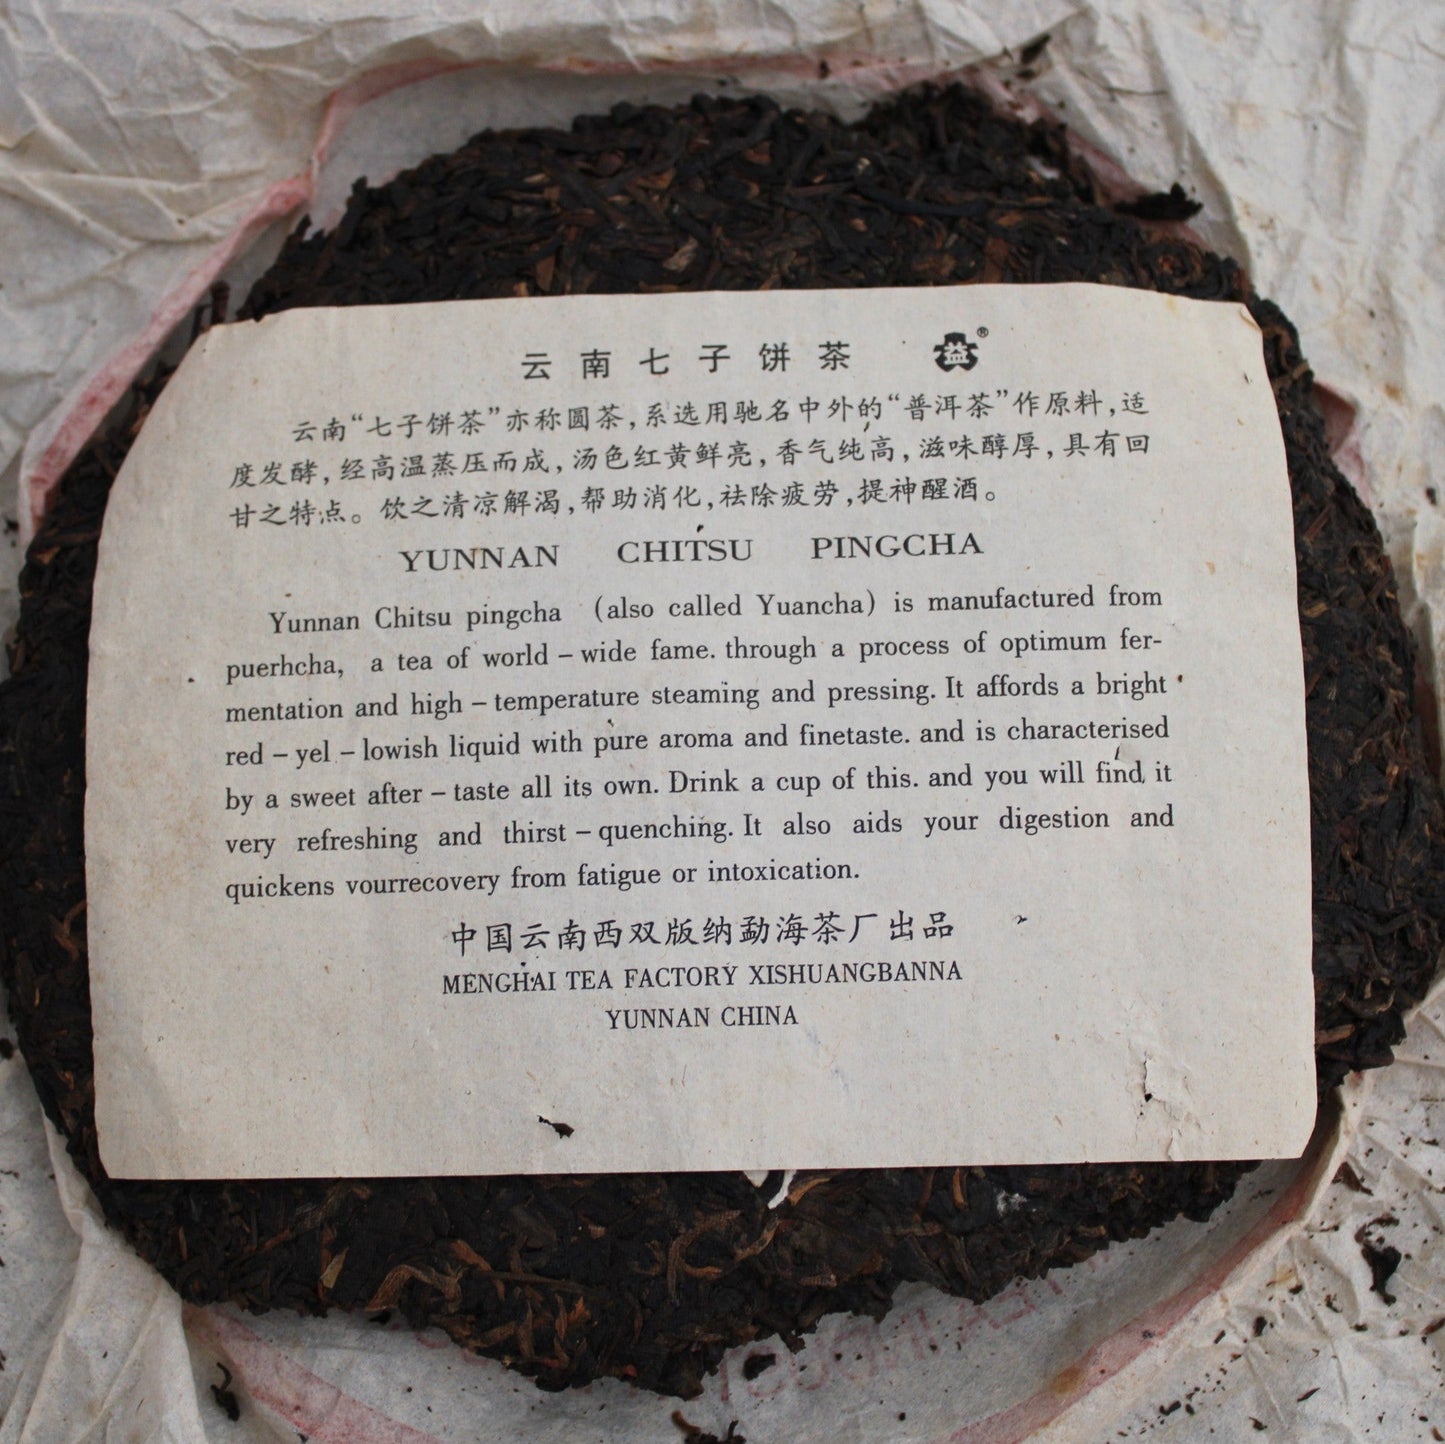 云南七子饼茶 益®
云南“七子饼茶”亦称圆茶,系选用驰名中外的“普洱茶”作原料,适
度发酵,经高温蒸压而成,汤色红黄鲜亮,香气纯高,滋味醇厚,具有回
甘之特点。饮之清凉解渴,帮助消化,祛除疲劳,提神醒酒。
YUNNAN CHITSU PINGCHA
Yunnan Chitsu pingcha (also called Yuancha) is manufactured from
puerhcha, a tea of world – wide fame. through a process of optimum fer-
mentation and high – temperature steaming and pressing. It affords a bright
red – yel – lowish liquid with pure aroma and finetaste. and is characterised
by a sweet after – taste all its own. Drink a cup of this. and you will find it
very refreshing and thirst – quenching. It also aids your digestion and
quickens vourrecovery from fatigue or intoxication.
中国云南西双版纳勐海茶厂出品
MENGHAI TEA FACTORY XISHUANGBANNA
YUNNAN CHINA